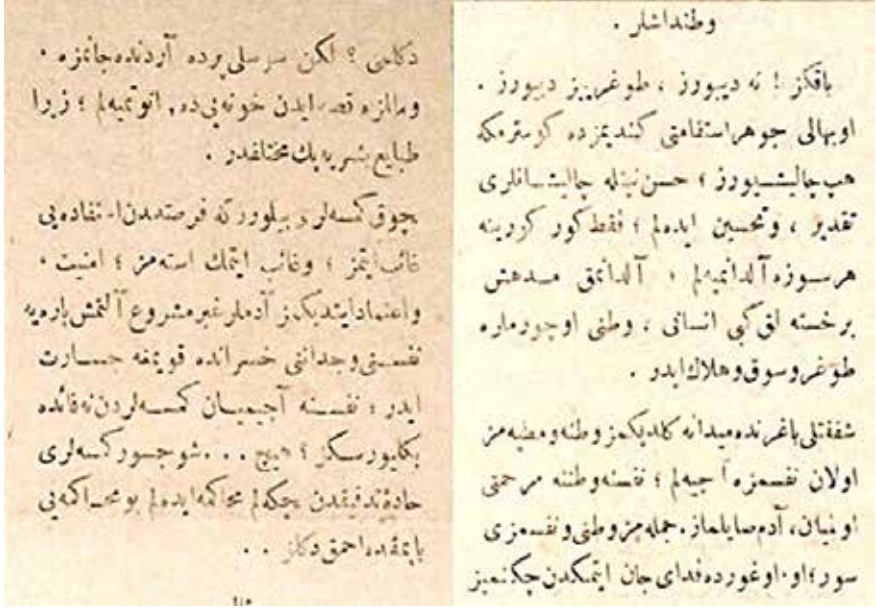 وطنداشلر .
باقكز ! نه ديیورز ، طوغریيز دیيورز .
اوبهالی جوهر استقامتی كندیمزده كوسترمكه
هپ چالیشــیورز ؛ حسن نیتله چالیشــانلری
تقدیر ، وتحسین ایده‌لم ؛ فقط كور كورینه
هرســوزه آلدانمیه‌لم ، آلدانمق مــدهش
برخسته لق كبی انسانی ، وطنی اوچورماره
طوغروسوق وهلاك ایدر .
شفقتلی باغرنده میدانه كلدیكمز وطنه ومطیه‌مز
اولان نفسمزه آجیه‌لم ؛ نفسنه وطننه مرحمتی
اولمیان، آدم صایلماز. جمله‌مز وطنی ونفسمزی
سور ؛ او اوغورده فدای جان ایتمكدن چكنمیز
دكلمی ؟ لكن سرسلی پرده آردنده جانمزه .
ومالمزه قصد ایدن خونه‌یی ده , اونوتمیه‌لم ؛ زیرا
طبایع بشریه پك مختلفدر .
چوق كمسه‌لر بیلورزكه فرصتدن استفاده‌یی
غائب ایتمز ؛ وغائب ایتمك استه‌مز ؛ امنیت .
واعتماد ایتدیكمز آدملر غیرمشروع آلتمش پاره‌یه
نفســنی وجداننی خسرانده قویمغه جســارت
ایدر ؛ نفســنه آجیمیــان كمســه‌لردن نه فائده
بكلیورســكز ؟ هیچ . . . شو جسور كسه‌لری
حادۀ تدقیقدن چكه‌لم محاكمه ایده‌لم بو محــاكمه‌یی
یاپمقده احمق دكلز . .